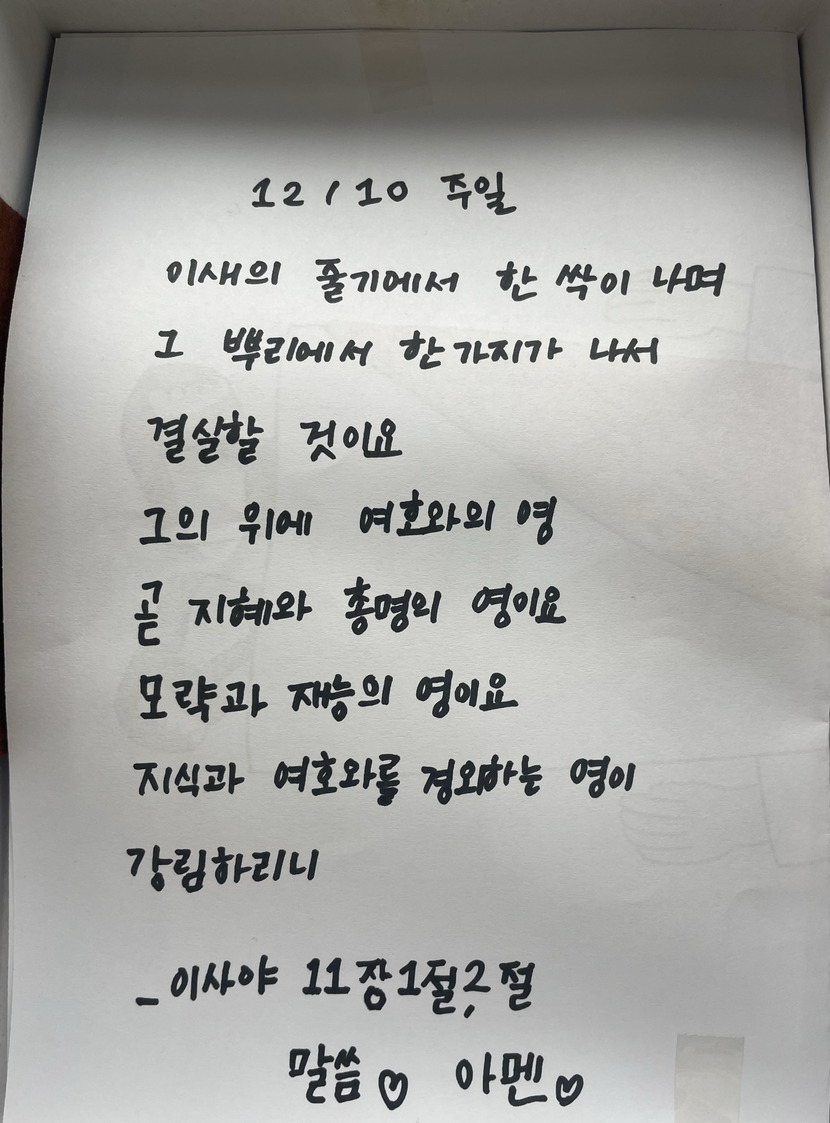 12/10 주일
이새의 줄기에서 한 싹이 나며
그 뿌리에서 한 가지가 나서
결실할 것이요
그의 위에 여호와의 영
곧 지혜와 총명의 영이요
모략과 재능의 영이요
지식과 여호와를 경외하는 영이
강림하리니
_이사야 11장1절,2절
말씀♡ 아멘♡